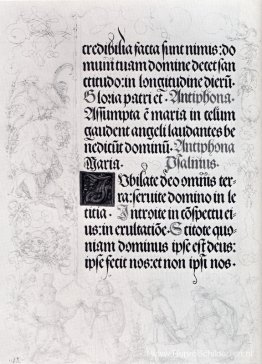 credibilia facta sunt nimis: do
mum tuam domine decet san
ctitudo: in longitudine dierū.
Gloria patri et. Antiphona.
Assumpta ē maria in celum
gaudent angeli laudantes be
nedicūt dominū. Antiphona
Maria. Psalmus.
IUbilate deo omnis ter-
ra: servite domino in le
titia. Introite in cōspectu ei-
us: in exultatiōe. Scitote quo-
niam dominus ipse est deus:
ipse fecit nos: et non ipsi nos.